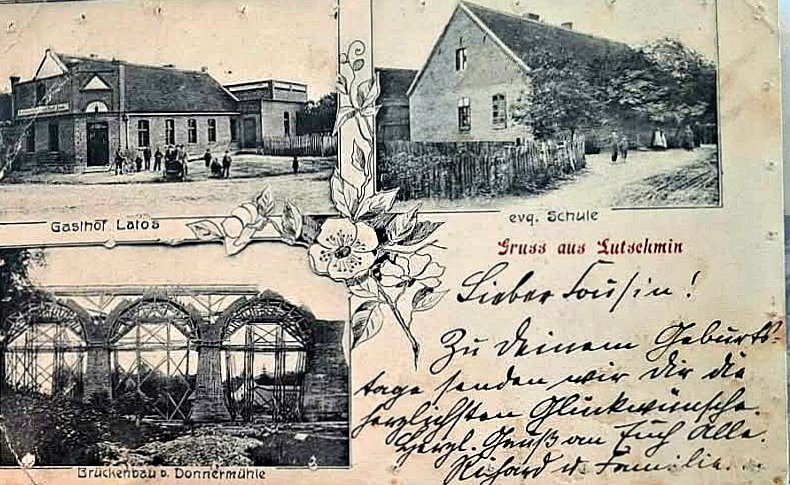 Gasthof Latos
evg. Schule
Gruss aus Lutschmin
Lieber Cousin!
Zu deinem Geburts-
tage senden wir dir die
herzlichsten Glückwünsche.
Herzl. Gruß an Euch Alle.
Richard u. Familie.
Brückenbau b. Donnermühle